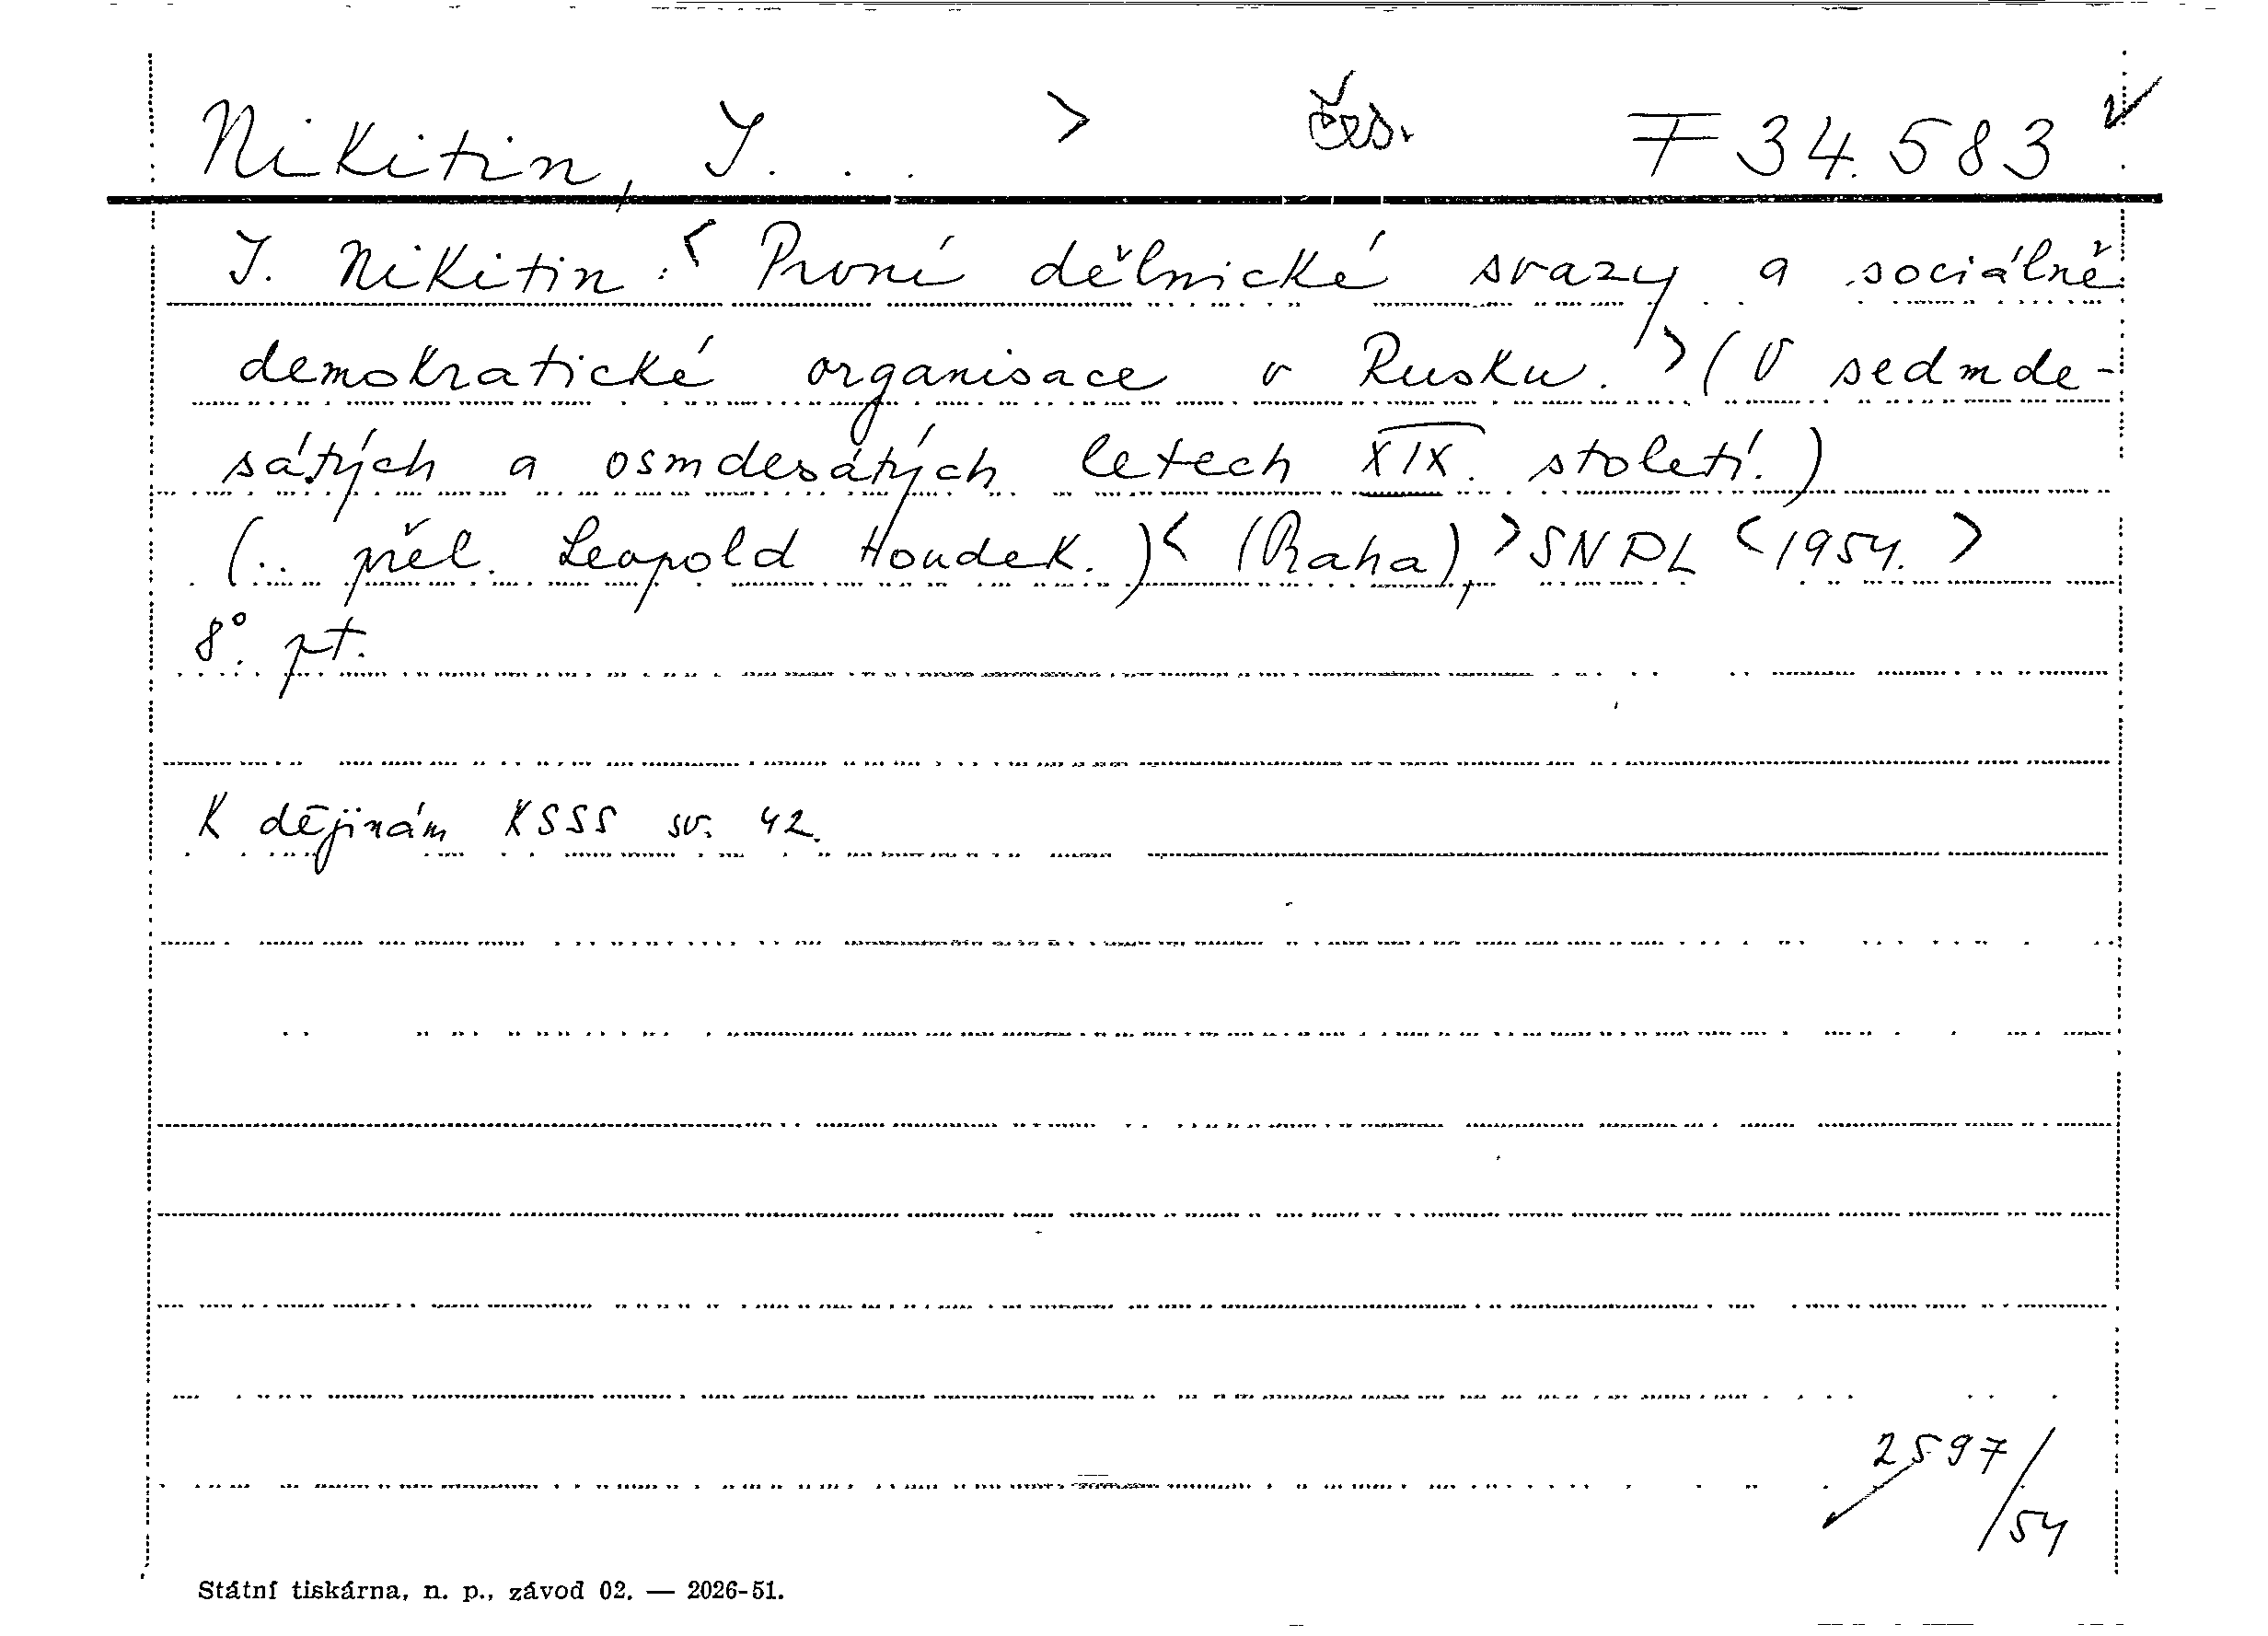 Nikitin, I. . . > čes. F 34.583
I. Nikitin: < První dělnické svazy a sociálně
demokratické organisace v Rusku. > (V sedmde-
sátých a osmdesátých letech XIX. století.)
(.. přel. Leopold Houdek.) < (Praha), > SNPL < 1954. >
8°. pt.
K dějinám KSSS sv. 42.
2597/54
Státní tiskárna, n. p., závod 02. — 2026-51.